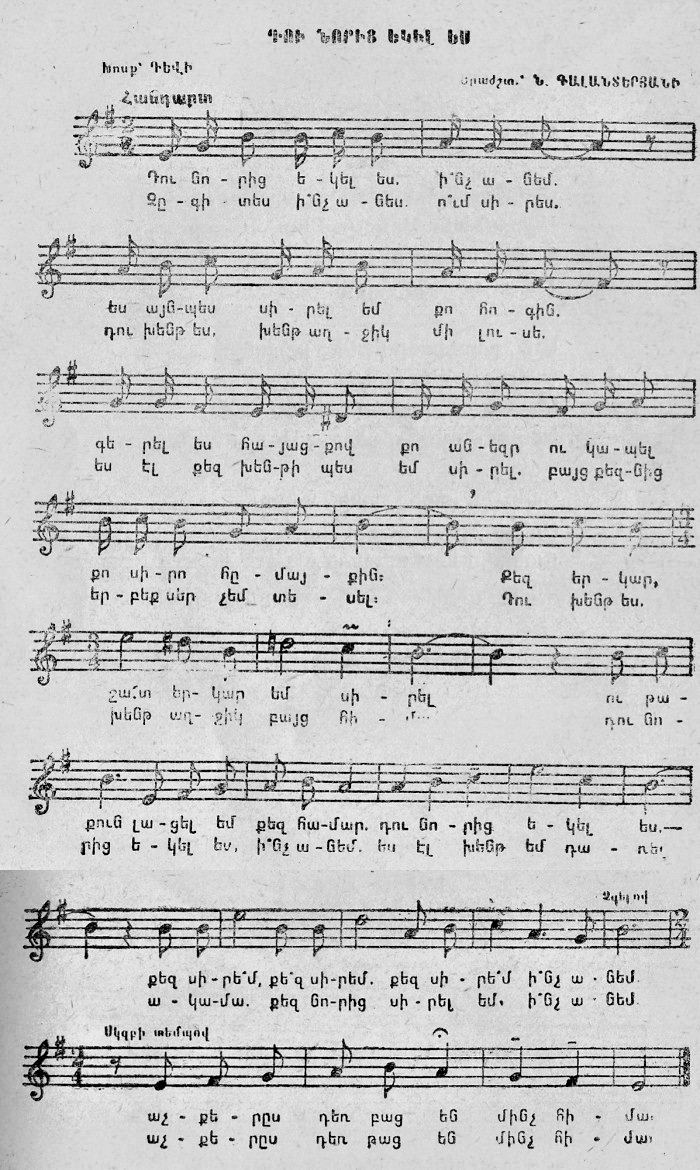 ԴՈՒ ՆՈՐԻՑ ԵԿԵԼ ԵՍ
Խոսք՝ ԴԵՎԻ
Երաժշտ.՝ Ն. ԳԱԼԱՆՏԵՐՅԱՆԻ
Հանդարտ
Դու նո - րից ե - կել ես. ի՞նչ ա - նեմ.
Չը - գի - տես ի՞նչ ա - նես. ո՞ւմ սի - րես.
ես այն-պես սի - րել եմ քո հո - գին.
դու խենթ ես. խենթ աղ - ջիկ մի լու - սե.
գե - րել ես հա-յաց-քով քո ան-եզր ու կա-պել
ես էլ քեզ խեն-թի պես եմ սի - րել. բայց քեզ-նից
քո սի-րո հը - մայ - քին: Քեզ եր - կար,
եր-բեք սեր չեմ տե - սել: Դու խենթ ես.
շա՜տ եր-կար եմ սի - րել ու թա -
խենթ աղ-ջիկ բայց հի - մա դու նո -
քուն լա-ցել եմ քեզ հա-մար. դու նո - րից ե - կել ես.—
րից ե - կել ես, ի՞նչ ա-նեմ. ես էլ խենթ եմ դա -
Զկելով
քեզ սի-րե՞մ, քե՞զ սի-րեմ. քեզ սի - րե՞մ ի՞նչ ա - նեմ.
ա - կա-մա. քեզ նո-րից սի - րել եմ, ի՞նչ ա - նեմ
Սկզբի տեմպով
աչ - քե - րըս դեռ բաց են մինչ հի - մա:
աչ - քե - րըս դեռ թաց են մինչ հի - մա: